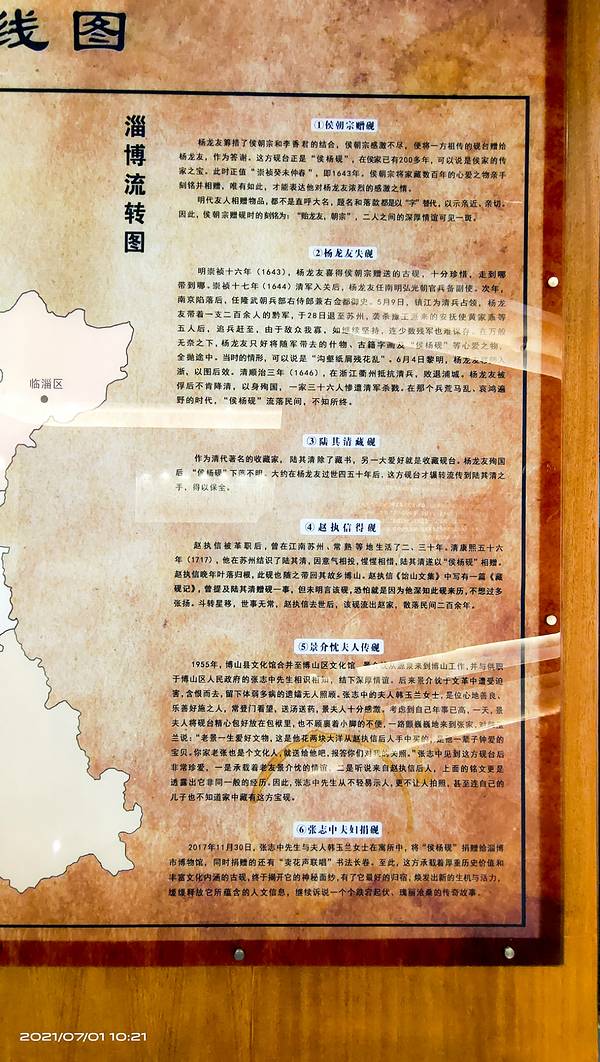 线图
淄博流转图
临淄区
①侯朝宗赠砚
杨龙友筹措了侯朝宗和李香君的结合，侯朝宗感激不尽，便将一方祖传的砚台赠给
杨龙友，作为答谢。这方砚台正是“侯杨砚”，在侯家已有200多年，可以说是侯家的传
家之宝。此时正值“崇祯癸未仲春”，即1643年。侯朝宗将家藏数百年的心爱之物亲手
刻铭并相赠，唯有如此，才能表达他对杨龙友浓烈的感激之情。
明代友人相赠物品，都不是直呼大名，题名和落款都是以“字”替代，以示亲近、亲切。
因此，侯朝宗赠砚时的刻铭为：“贻龙友，朝宗”，二人之间的深厚情谊可见一斑。
②杨龙友失砚
明崇祯十六年（1643），杨龙友喜得侯朝宗赠送的古砚，十分珍惜，走到哪
带到哪。崇祯十七年（1644）清军入关后，杨龙友任南明弘光朝官兵备副使。次年，
南京陷落后，任隆武朝兵部右侍郎兼右佥都御史。5月9日，镇江为清兵占领，杨龙
友带着一支二百余人的黔军，于28日退至苏州，袭杀豫王派来的安抚使黄家鼒等
五人后，追兵赶至，由于敌众我寡，如继续坚持，连少数残军也难保存。在万般
无奈之下，杨龙友只好将随军带去的什物、古籍字画及“侯杨砚”等心爱之物，
全抛途中。当时的情形，可以说是“沟壑纸屑残花乱”。6月4日黎明，杨龙友
浙，以图后效。清顺治三年（1646），在浙江衢州抵抗清兵，败退浦城。杨龙友被
俘后不肯降清，以身殉国，一家三十六人惨遭清军杀戮。在那个兵荒马乱、哀鸿遍
野的时代，“侯杨砚”流落民间，不知所终。
③陆其清藏砚
作为清代著名的收藏家，陆其清除了藏书，另一大爱好就是收藏砚台。杨龙友殉国
后“侯杨砚”下落不明。大约在杨龙友过世四五十年后，这方砚台才辗转流传到陆其清之
手，得以保全。
④赵执信得砚
赵执信被革职后，曾在江南苏州、常熟等地生活了二、三十年。清康熙五十六
年（1717），他在苏州结识了陆其清，因意气相投，惺惺相惜，陆其清遂以“侯杨砚”相赠。
赵执信晚年叶落归根，此砚也随之带回其故乡博山。赵执信《饴山文集》中写有一篇《藏
砚记》，曾提及陆其清赠砚一事，但未明言该砚，恐怕就是因为他深知此砚来历，不想过多
张扬。斗转星移，世事无常，赵执信去世后，该砚流出赵家，散落民间二百余年。
⑤景介忱夫人传砚
1955年，博山县文化馆合并至博山区文化馆，景介忱从淄川来到博山工作，并与供职
于博山区人民政府的张志中先生相识相知，结下深厚情谊。后来景介忱十文革中遭受迫
害，含恨而去，留下体弱多病的遗孀无人照顾。张志中的夫人韩玉兰女士，是位心地善良、
乐善好施之人，常登门看望，送汤送药，景夫人十分感激。考虑到自己年事已高，一天，景
夫人将砚台精心包好放在包袱里，也不顾裹着小脚的不便，一路颤巍巍地来到张家，对韩玉
兰说：“老景一生爱好文物，这是他花两块大洋从赵执信后人手中买的，是他一辈子钟爱的
宝贝。你家老张也是个文化人，就送给他吧，报答你们对我的关照。”张志中见到这方砚台后
非常珍爱，一是承载着老友景介忱的情谊，二是听说来自赵执信后人，上面的铭文更是
透露出它非同一般的经历。因此，张志中先生从不轻易示人，更不让人拍照，甚至连自己的
儿子也不知道家中藏有这方宝砚。
⑥张志中夫妇捐砚
2017年11月30日，张志中先生与夫人韩玉兰女士在寓所中，将“侯杨砚”捐赠给淄博
市博物馆，同时捐赠的还有“卖花声联唱”书法长卷。至此，这方承载着厚重历史价值和
丰富文化内涵的古砚，终于揭开它的神秘面纱，有了它最好的归宿，焕发出新的生机与活力，
缓缓释放它所蕴含的人文信息，继续诉说一个个跌宕起伏、瑰丽沧桑的传奇故事。
2021/07/01 10:21